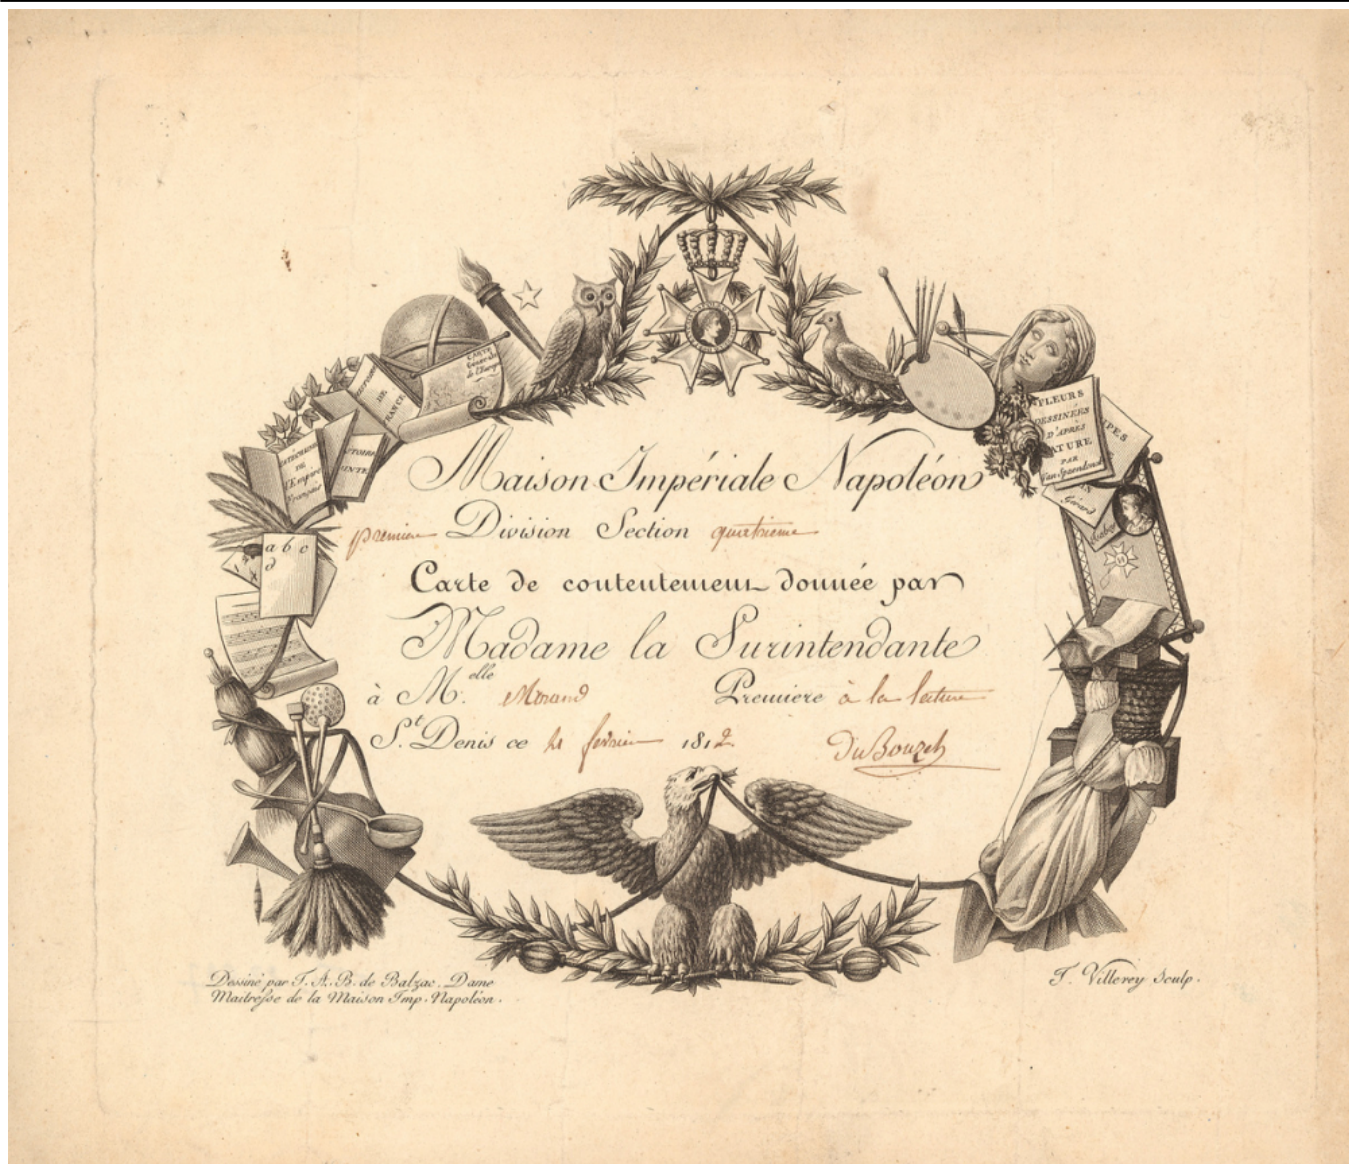 CARTE
Générale
de l'Europe
DE
FRANCE
CATECHISME
DE
l'Empire
Français
HISTOIRE
SAINTE
a b c
d
FLEURS
DESSINÉES
D'APRÈS
NATURE
PAR
Van Spaendonck
Gérard
Maison Impériale Napoléon
premiere Division Section quatrieme
Carte de contentement donnée par
Madame la Surintendante
à M.elle Morand Premiere à la lecture
St. Denis ce fevrier 1812 DuBouzet
Dessiné par T. A. B. de Balzac. Dame
Maitresse de la Maison Imp. Napoléon.
T. Villerey Sculp.